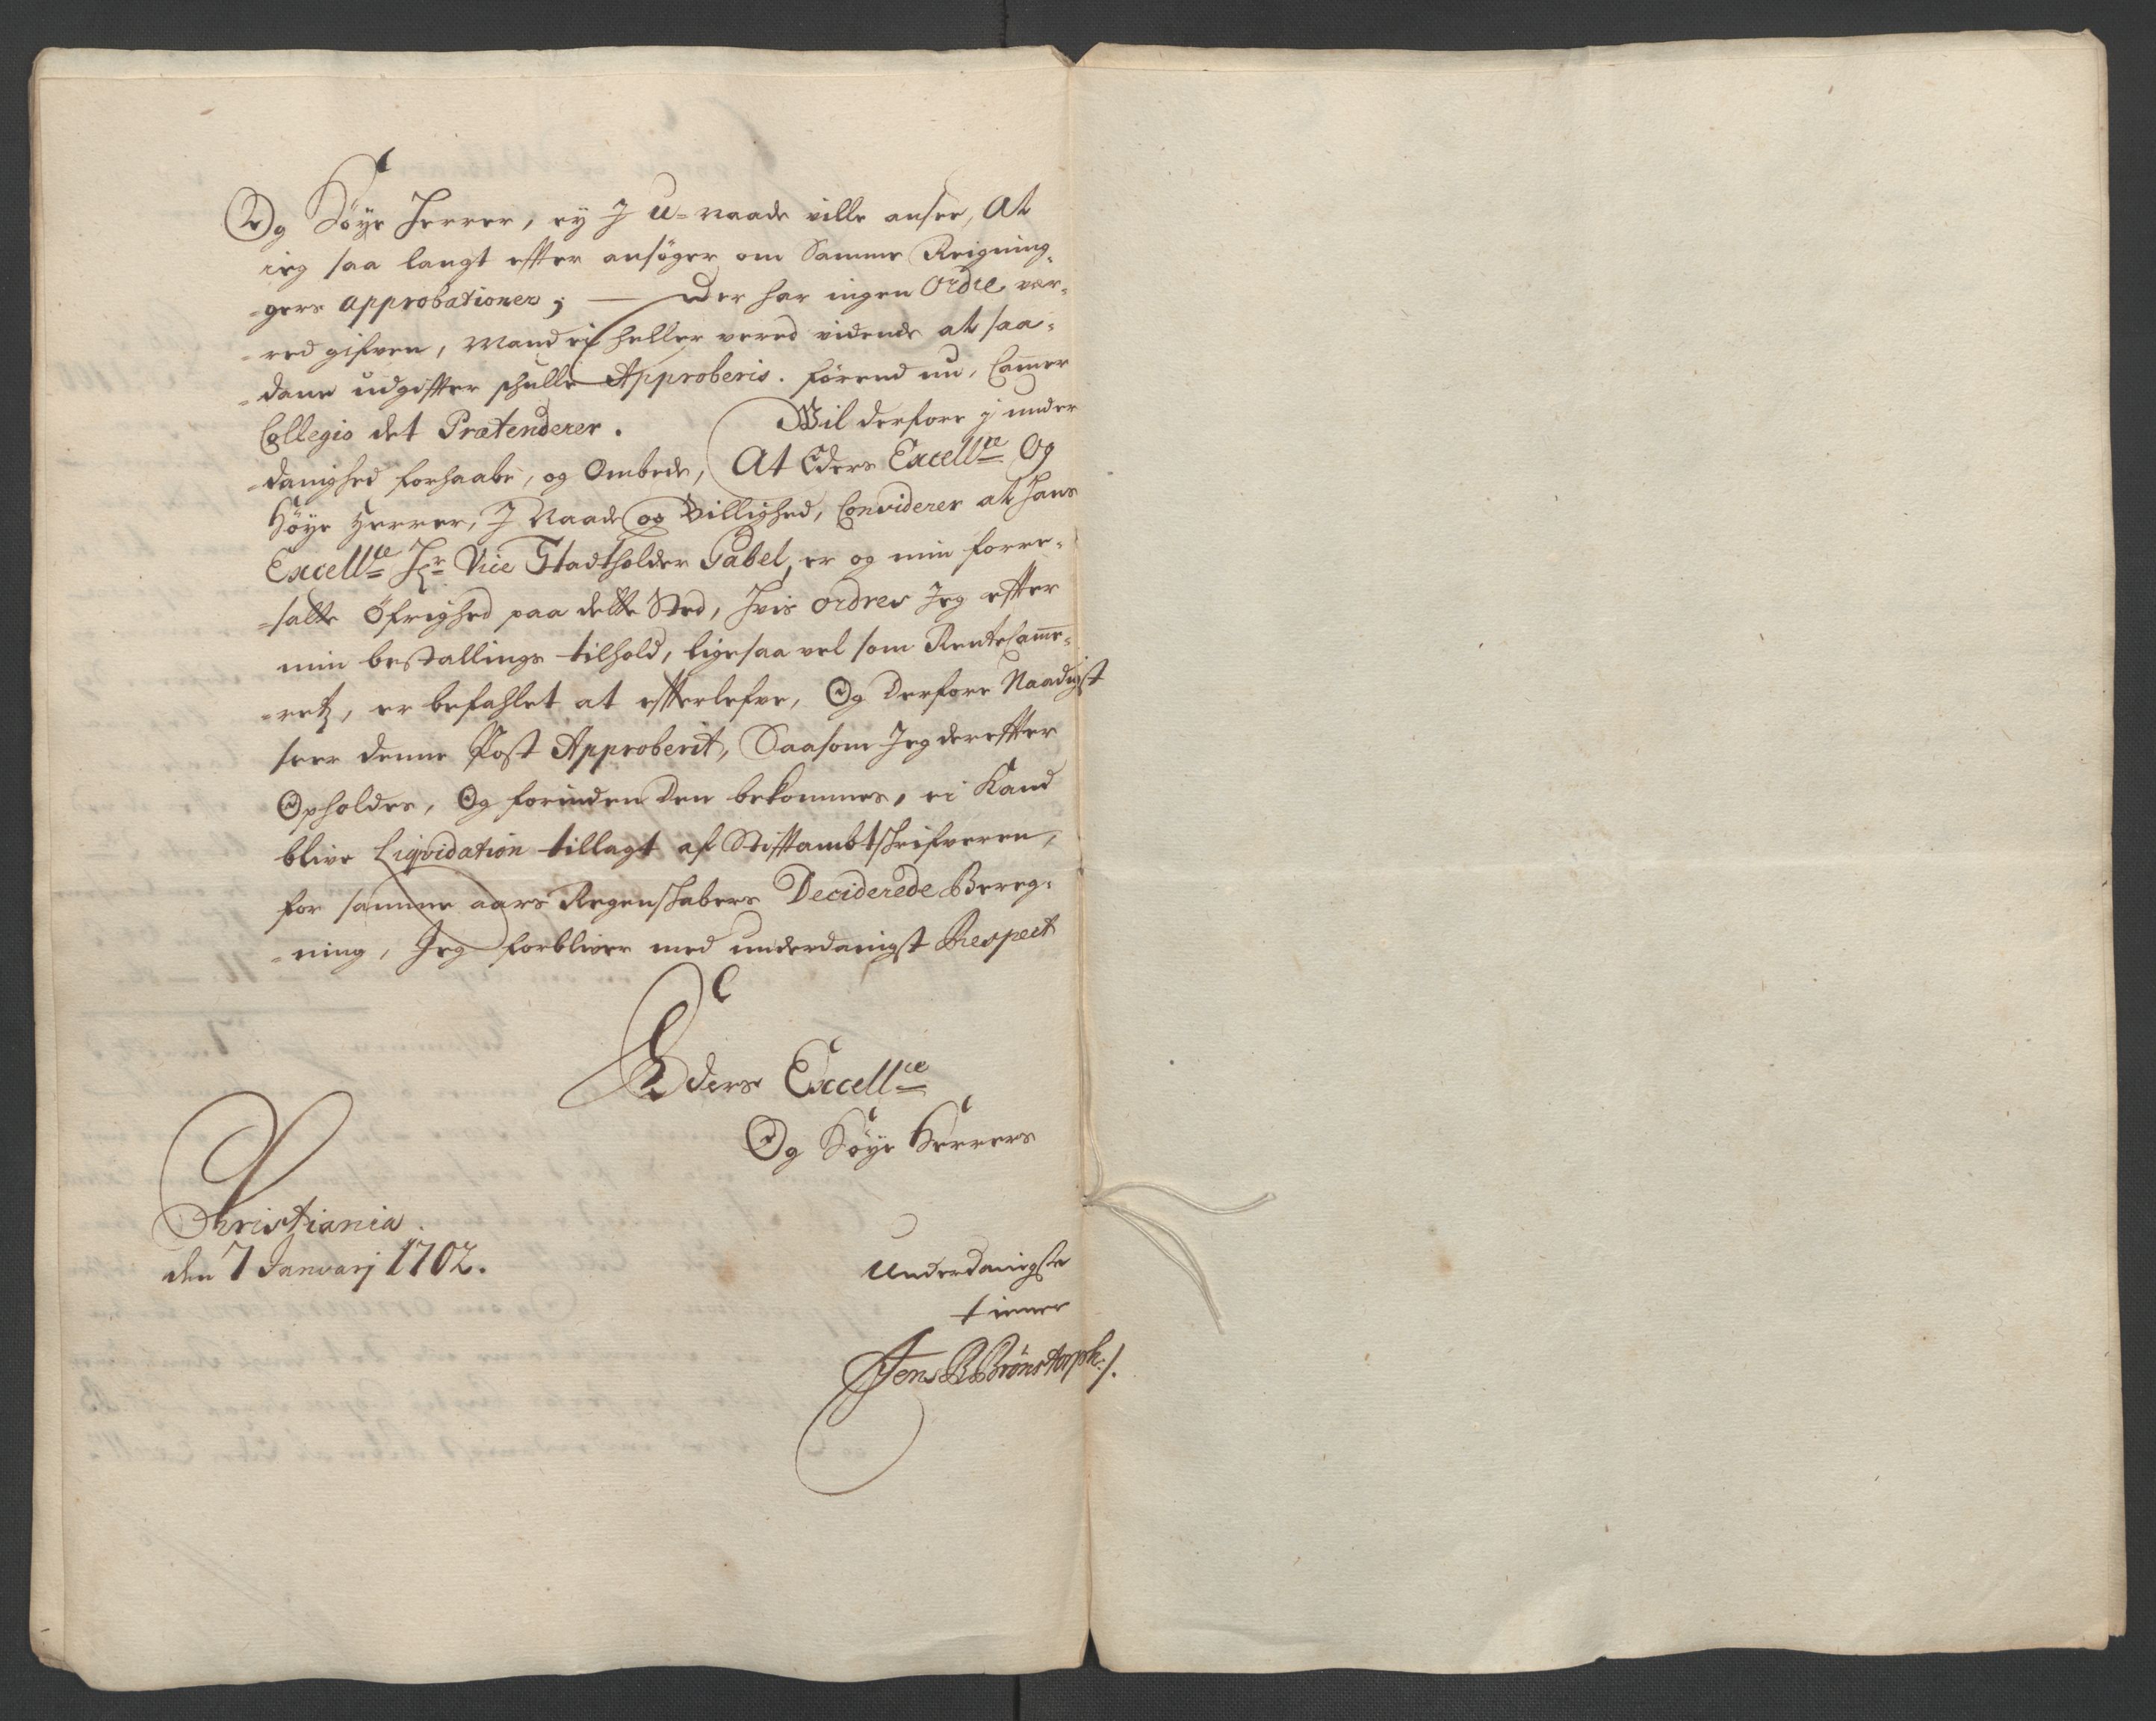 Og Høye Herrer, ey J U-naade ville ansee, At
ieg saa langt effter ansøger om Samme Reigning-
-gers approbationer; — der har ingen Ordre vær-
-red gifven, Mand ei heller vered vidende at saa-
-dane udgiffter schulle Approberis. førend nu, Cammer
Collegio det Prætenderer. Wil derfore i under
-danighed forhaabe, og Ombede, At Eders Excell.ce Og
Høye Herrer, J Naade og Billighed, Conviderer at hans
Excell.ce Hr. Vice Stadtholder Gabel, er og min forre-
-satte Øfrighed paa dette Sted, hvis ordrer Jeg effter
min bestallings tilhold, ligesaa vel som RenteCamme-
-retz, er befahlet at effterlefve, Og derfore Naadigst
seer denne Post Approberit, Saasom Jeg dereffter
Opholdes, Og forinden den bekommes, ei Kand
blive Liqvidation tillagt af Stifftambtschrifveren,
for samme aars Regenskabers Deciderede Bereg-
-ning, Jeg forbliver med underdanigst Respect
Eders Excell.ce
Og Høye Herrers
Christiania.
den 7 Januarj 1702.
Underdanigste
tiener
Jens B Brönstorph:/.